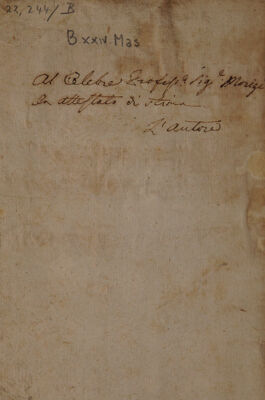 22,244/B
B xxiv. Mas
Al Celebre Profess.e Sig.e
In attestato di stima
L'autore